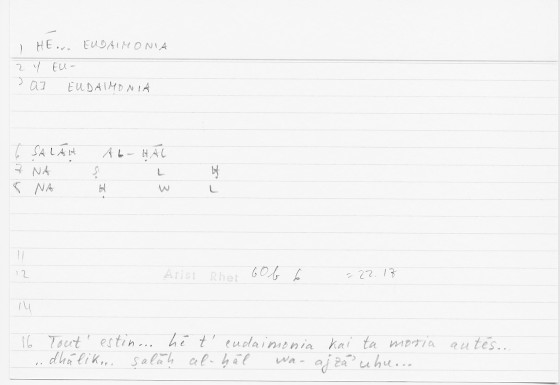 1 HĒ... EUDAIMONIA
2 1) EU-
3 02) EUDAIMONIA
6 ṢALĀḤ AL-ḤĀL
7 NA Ṣ L Ḥ
8 NA Ḥ W L
11
12 Arist Rhet 60b 6 =22.17
14
16 Tout' estin... hē t' eudaimonia kai ta moria autēs..
..dhālik... ṣalāḥ al-ḥāl wa-ajzā'uhu...